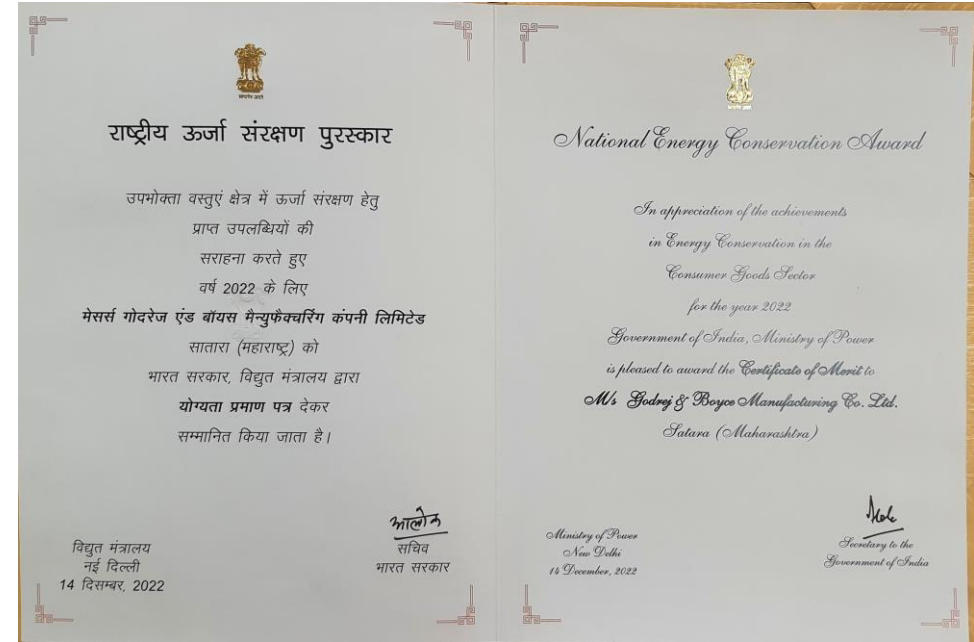 राष्ट्रीय ऊर्जा संरक्षण पुरस्कार
उपभोक्ता वस्तुएं क्षेत्र में ऊर्जा संरक्षण हेतु
प्राप्त उपलब्धियों की
सराहना करते हुए
वर्ष 2022 के लिए
मेसर्स गोदरेज एंड बॉयस मैन्युफैक्चरिंग कंपनी लिमिटेड
सातारा (महाराष्ट्र) को
भारत सरकार, विद्युत मंत्रालय द्वारा
योग्यता प्रमाण पत्र देकर
सम्मानित किया जाता है।
आलोक
सचिव
भारत सरकार
विद्युत मंत्रालय
नई दिल्ली
14 दिसम्बर, 2022
National Energy Conservation Award
In appreciation of the achievements
in Energy Conservation in the
Consumer Goods Sector
for the year 2022
Government of India, Ministry of Power
is pleased to award the Certificate of Merit to
M/s Godrej & Boyce Manufacturing Co. Ltd.
Satara (Maharashtra)
Ministry of Power
New Delhi
14 December, 2022
Secretary to the
Government of India